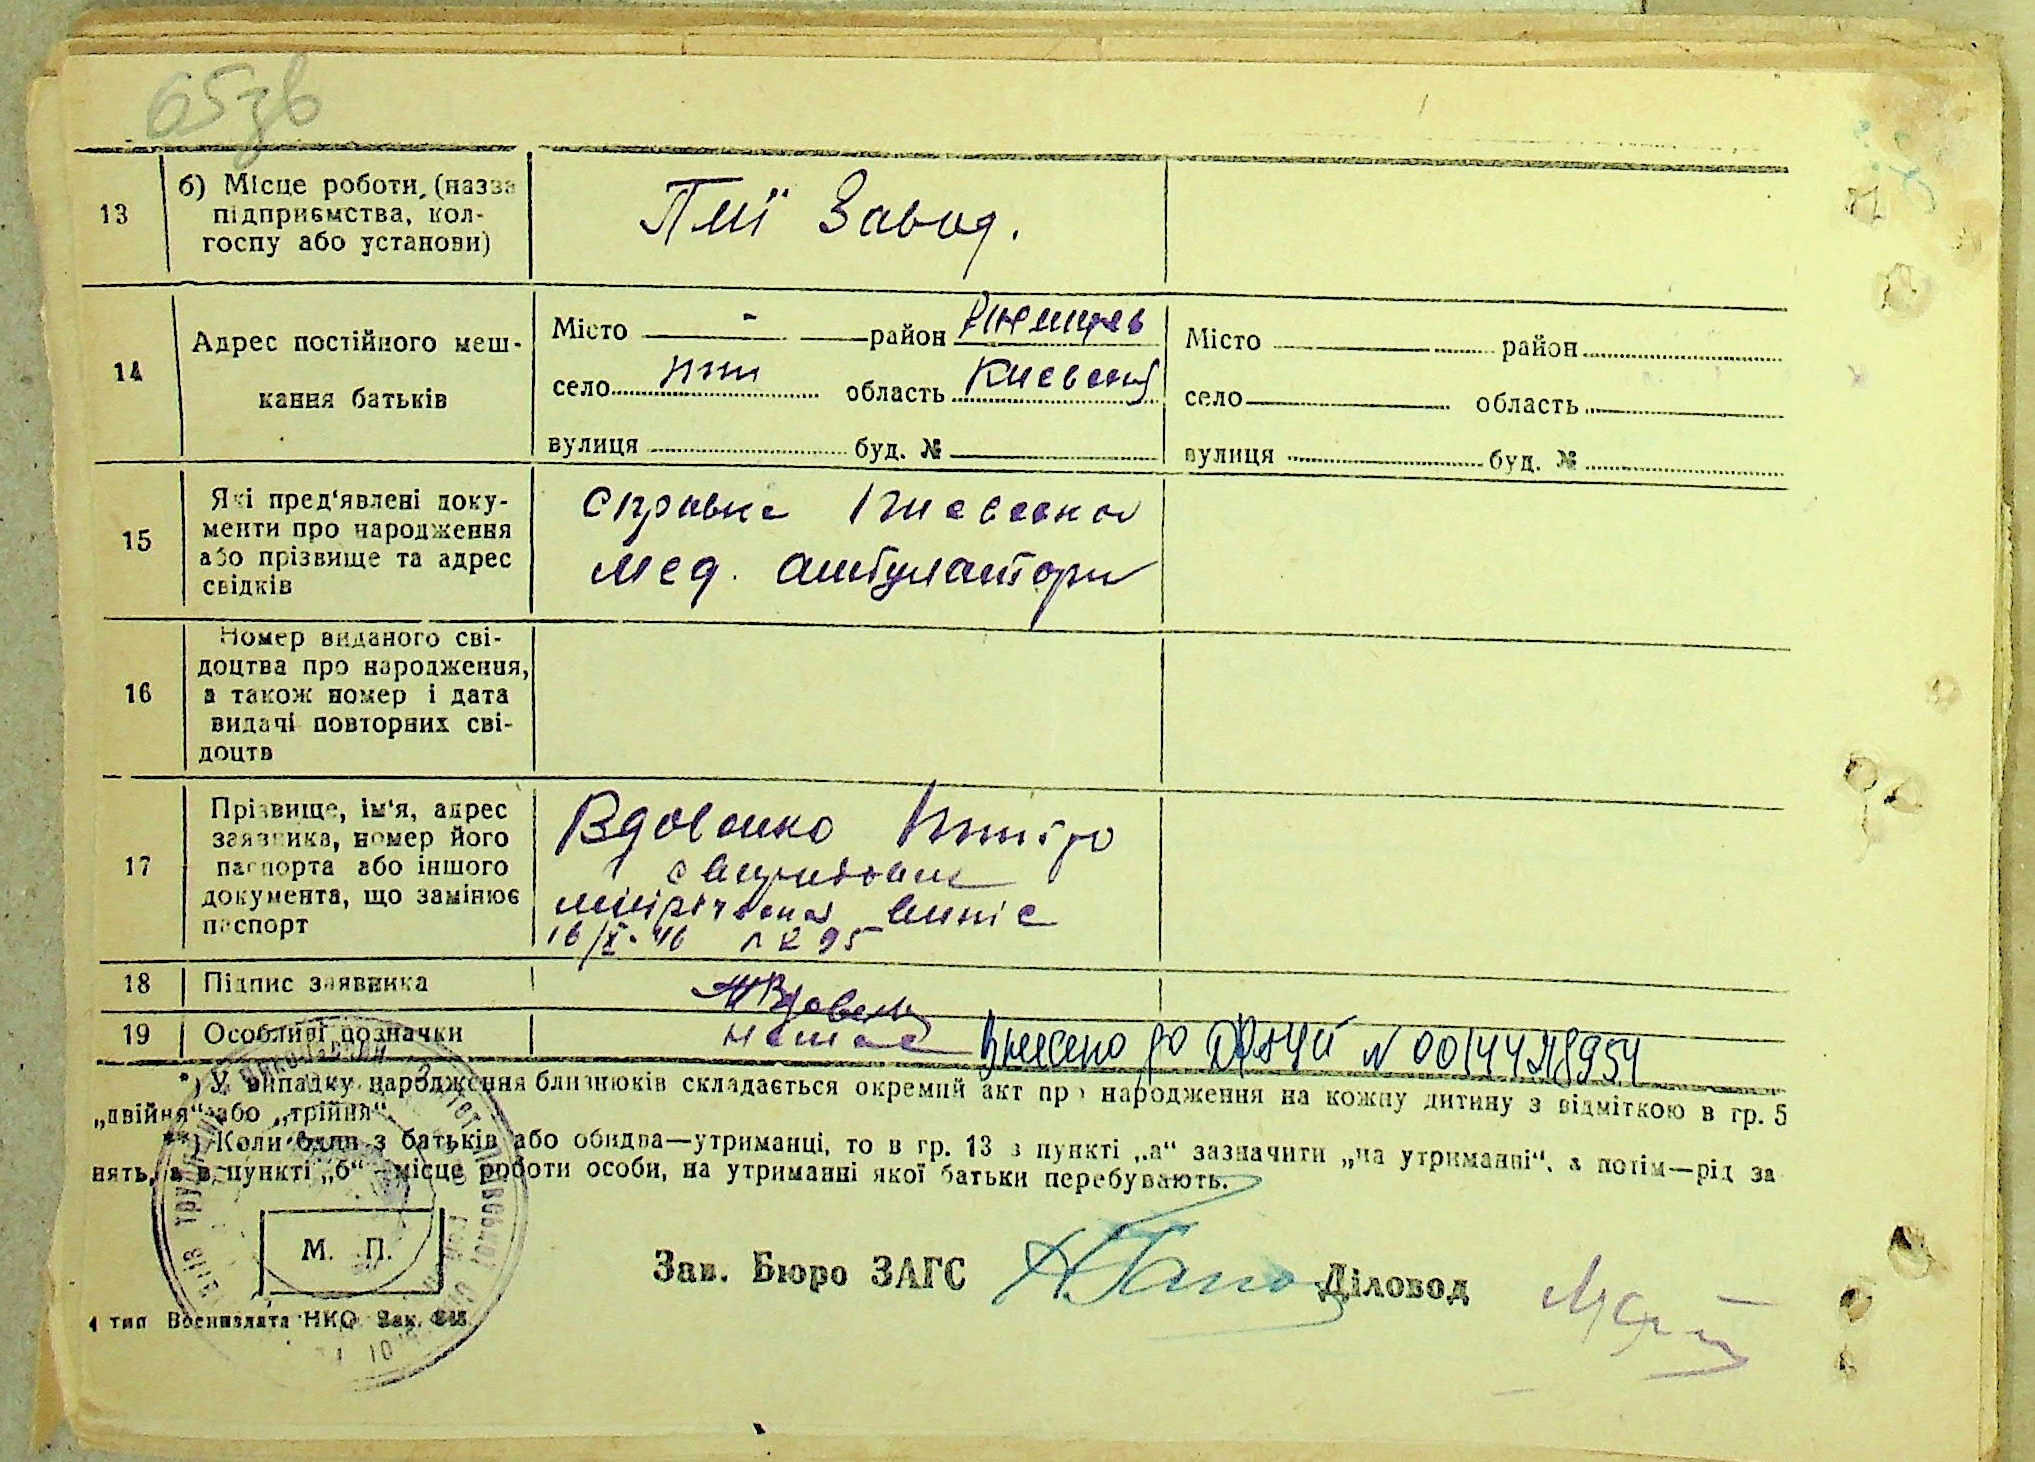 65зв
13
б) Місце роботи (назва
підприємства, кол-
госпу або установи)
Завод.
14
Адрес постійного меш-
кання батьків
Місто - район
село область
вулиця буд. №
Місто район
село область
вулиця буд. №
15
Які пред'явлені доку-
менти про народження
або прізвище та адрес
свідків
Справка
мед. амбулаторії
16
Номер виданого сві-
доцтва про народження,
а також номер і дата
видачі повторних сві-
доцтв
17
Прізвище, ім'я, адрес
заявника, номер його
паспорта або іншого
документа, що замінює
паспорт
Вдовенко
16/X-46 95
18 Підпис заявника
19 Особливі позначки
немає Внесено до ДРАЦС N 00144718954
*) У випадку народження близнюків складається окремий акт про народження на кожну дитину з відміткою в гр. 5
„двійня“ або „трійня“.
**) Коли один з батьків або обидва—утриманці, то в гр. 13 в пункті „а“ зазначити „на утриманні“, а потім—рід за
нять, а в пункті „б“ місце роботи особи, на утриманні якої батьки перебувають.
М. П.
Зав. Бюро ЗАГС Діловод
4 тип Воениздата НКО Зак.